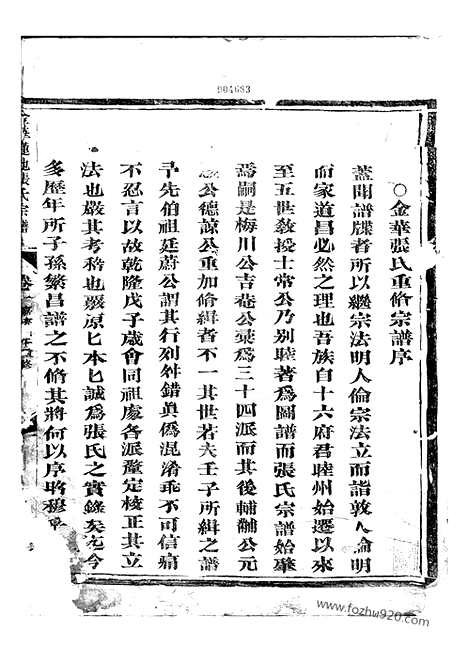 904683
○金華張氏重脩宗譜序
蓋聞譜牒者所以繼宗法明人倫宗法立而誼敦人倫明
而家道昌必然之理也吾族自十六府君睦州始遷以來
至五世敎授士常公乃別睦著爲圖譜而張氏宗譜始肇
焉嗣是梅川公吉菴公槩爲三十四派而其後輔黼公元
公德諒公重加脩緝者不一其世若夫壬子所緝之譜
先伯祖廷蔚公謂其行列舛錯眞僞混淆乖不可信痛
不忍言以故乾隆戊子歲會同祖處各派釐定校正其立
法也嚴其考稽也覈原匕本匕誠爲張氏之實錄矣迄今
多歷年所子孫繁昌譜之不脩其將何以序昭穆
金華蓮池張氏宗譜
卷
www.fozhu920.com